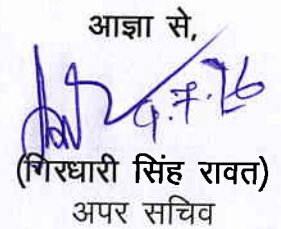 आज्ञा से,
(गिरधारी सिंह रावत)
अपर सचिव